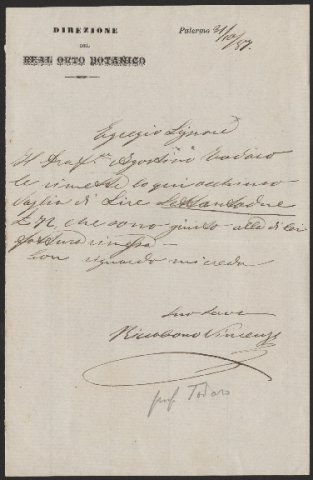 DIREZIONE
DEL
REAL ORTO BOTANICO
Palermo 21/10/87.
Egregio Signore
Il Prof.re Agostino Todaro
le rimette lo qui acchiuso
Vaglia di Lire Settantadue
£ 72 che sono giusto alla di lei
fattura rimessa
Con riguardo mi creda
Suo Devo
Riccobono Vincenzo
prof. Todaro